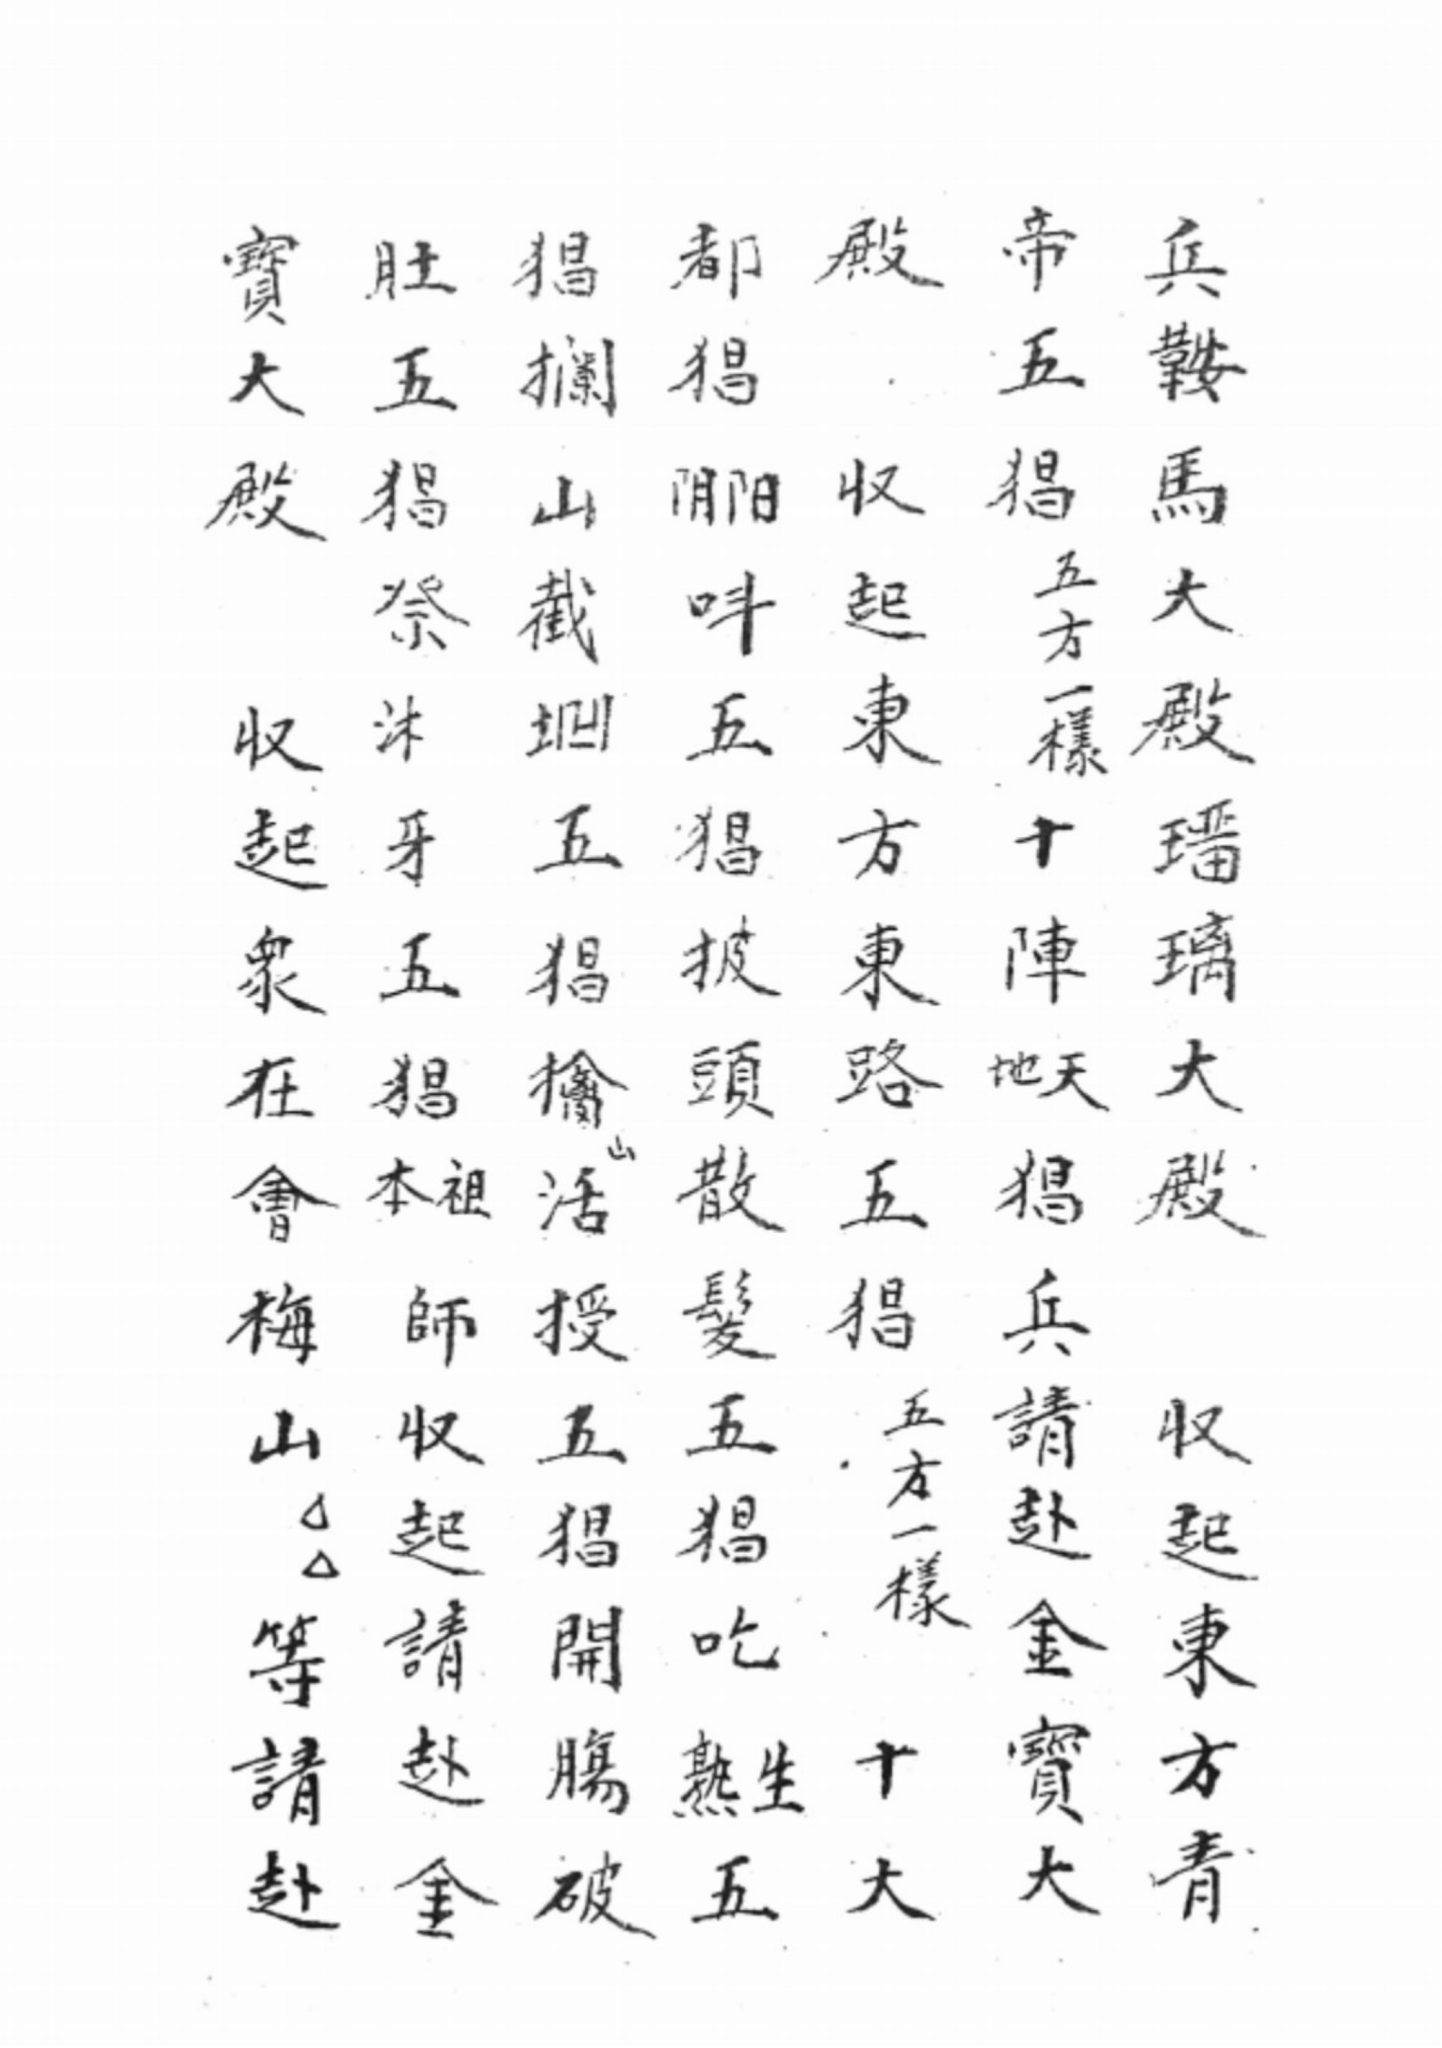 兵鞍馬大殿璢璃大殿　收起東方青
帝五猖五方一樣十陣天地猖兵請赴金寶大
殿　收起東方東路五猖五方一樣　十大
都猖陽陰呌五猖披頭散髮五猖吃生熟五
猖攔山截㘭五猖擒山活授五猖開腸破
肚五猖祭沐牙五猖祖本師收起請赴金
寶大殿　收起衆在會梅山△△等請赴